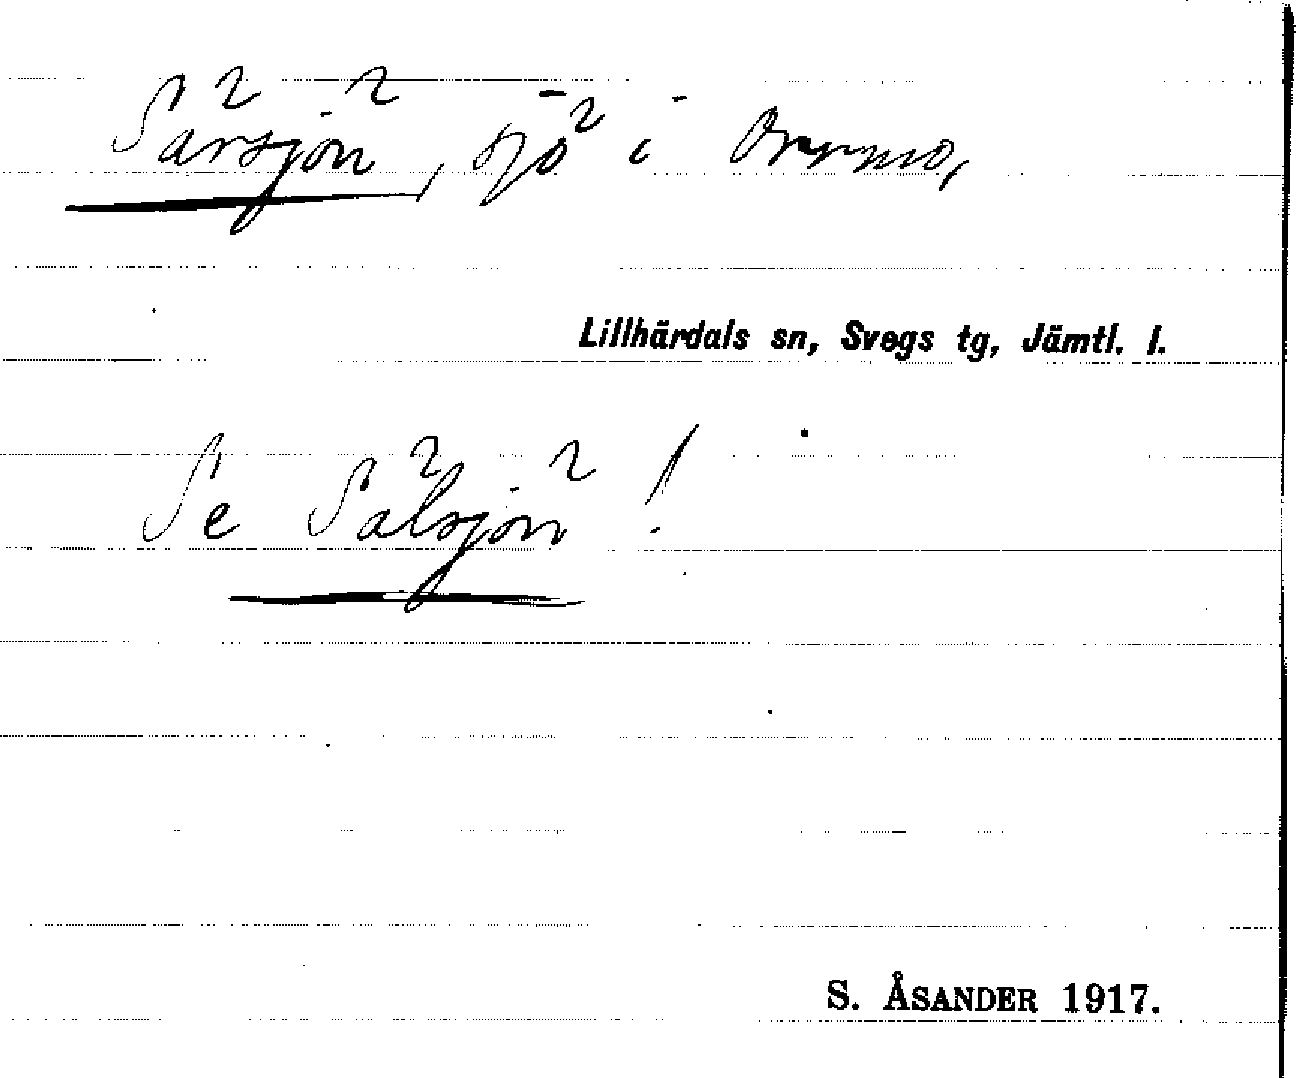 Sarsjön, sjö i Orrmo,
Lillhärdals sn, Svegs tg, Jämtl. l.
Se Salsjön!
S. ÅSANDER 1917.